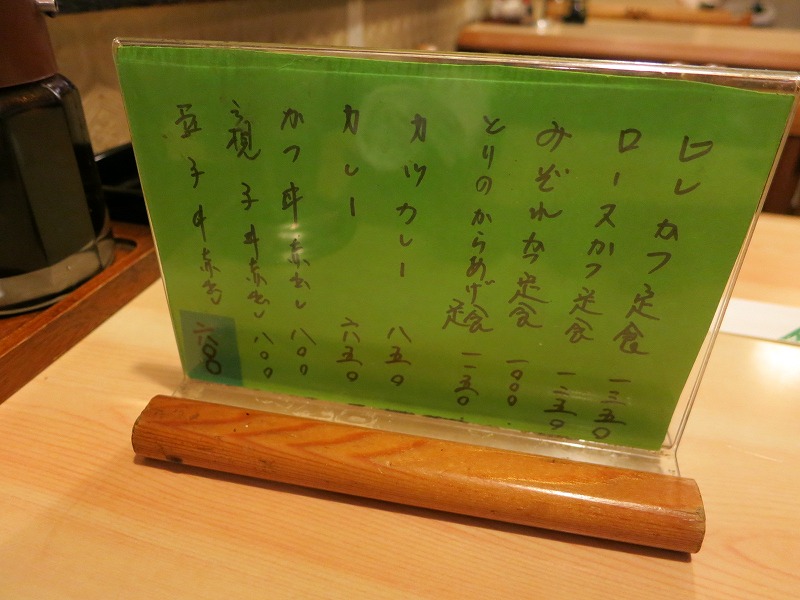 ヒレかつ定食 一三五〇
ロースかつ定食 一二五〇
みぞれかつ定食 一〇〇〇
とりのからあげ定食 一一五〇
カツカレー 八五〇
カレー 六五〇
かつ丼赤出し 八〇〇
親子丼赤出し 八〇〇
玉子丼赤出し 六〇〇